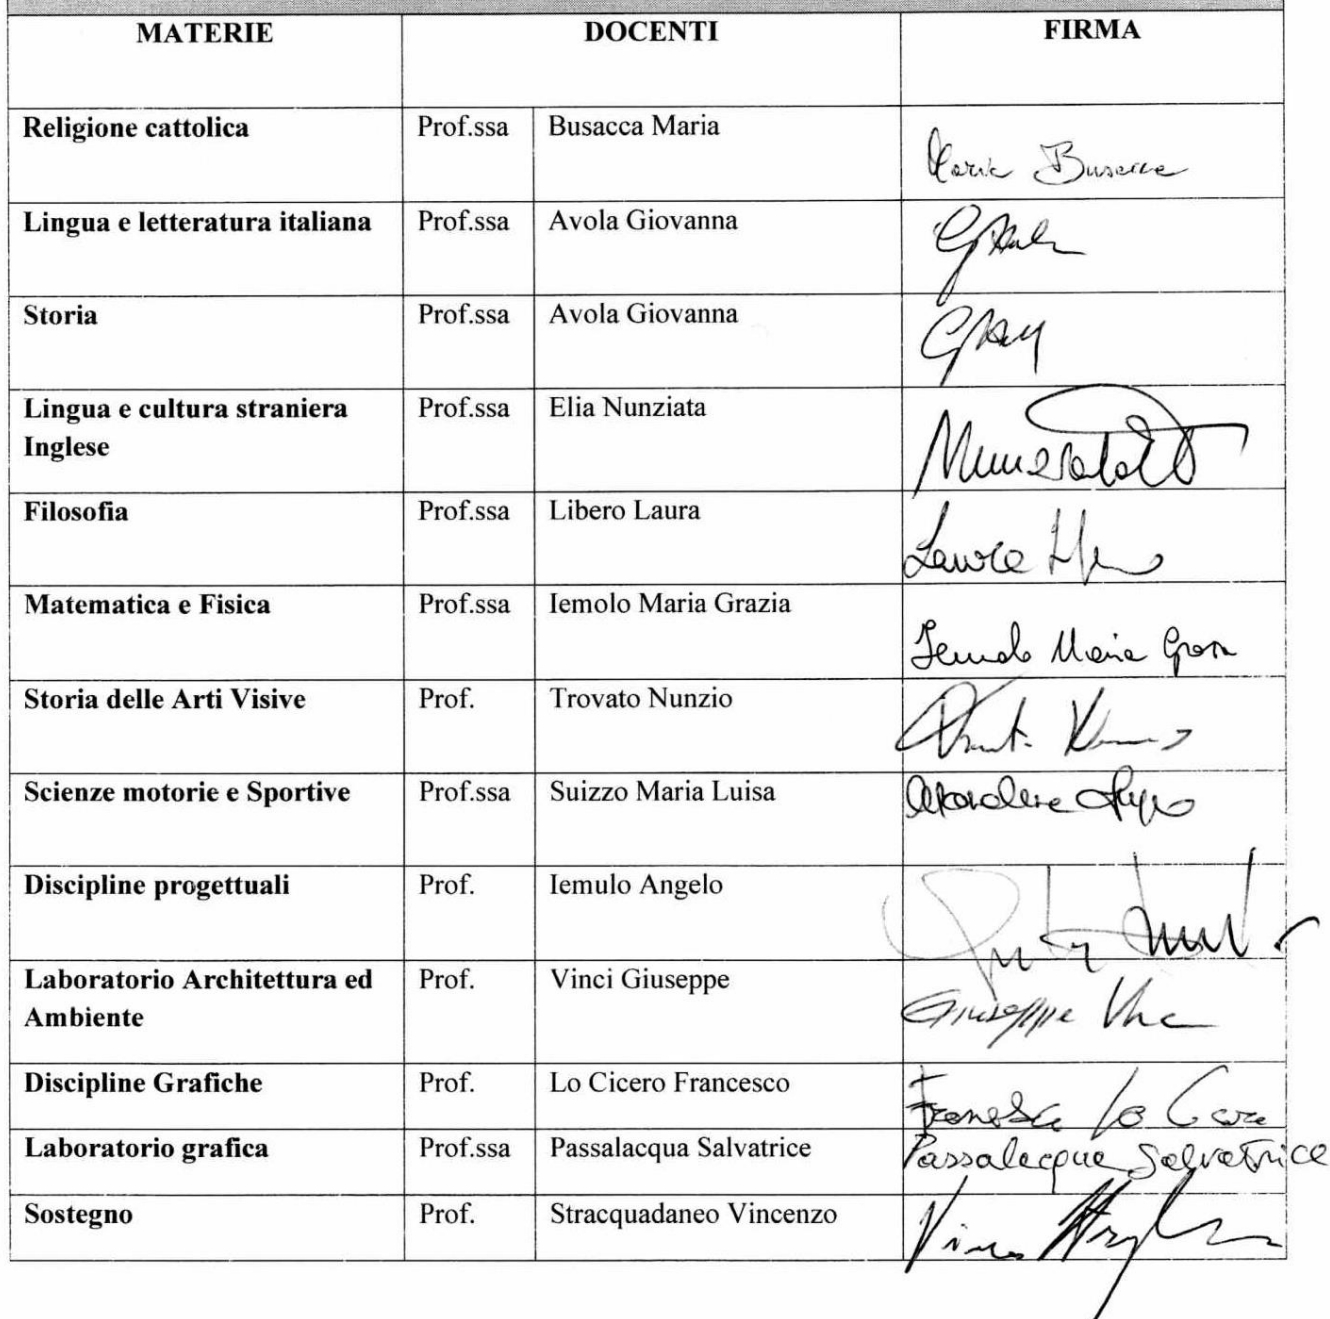 MATERIE DOCENTI FIRMA
Religione cattolica Prof.ssa Busacca Maria
Maria Busacca
Lingua e letteratura italiana Prof.ssa Avola Giovanna
Storia Prof.ssa Avola Giovanna
Lingua e cultura straniera Prof.ssa Elia Nunziata
Inglese
Filosofia Prof.ssa Libero Laura
Laura
Matematica e Fisica Prof.ssa Iemolo Maria Grazia
Iemolo Maria Grazia
Storia delle Arti Visive Prof. Trovato Nunzio
Scienze motorie e Sportive Prof.ssa Suizzo Maria Luisa
Discipline progettuali Prof. Iemulo Angelo
Laboratorio Architettura ed Prof. Vinci Giuseppe
Ambiente
Giuseppe Vinci
Discipline Grafiche Prof. Lo Cicero Francesco
Francesco Lo Cicero
Laboratorio grafica Prof.ssa Passalacqua Salvatrice
Passalacqua Salvatrice
Sostegno Prof. Stracquadaneo Vincenzo